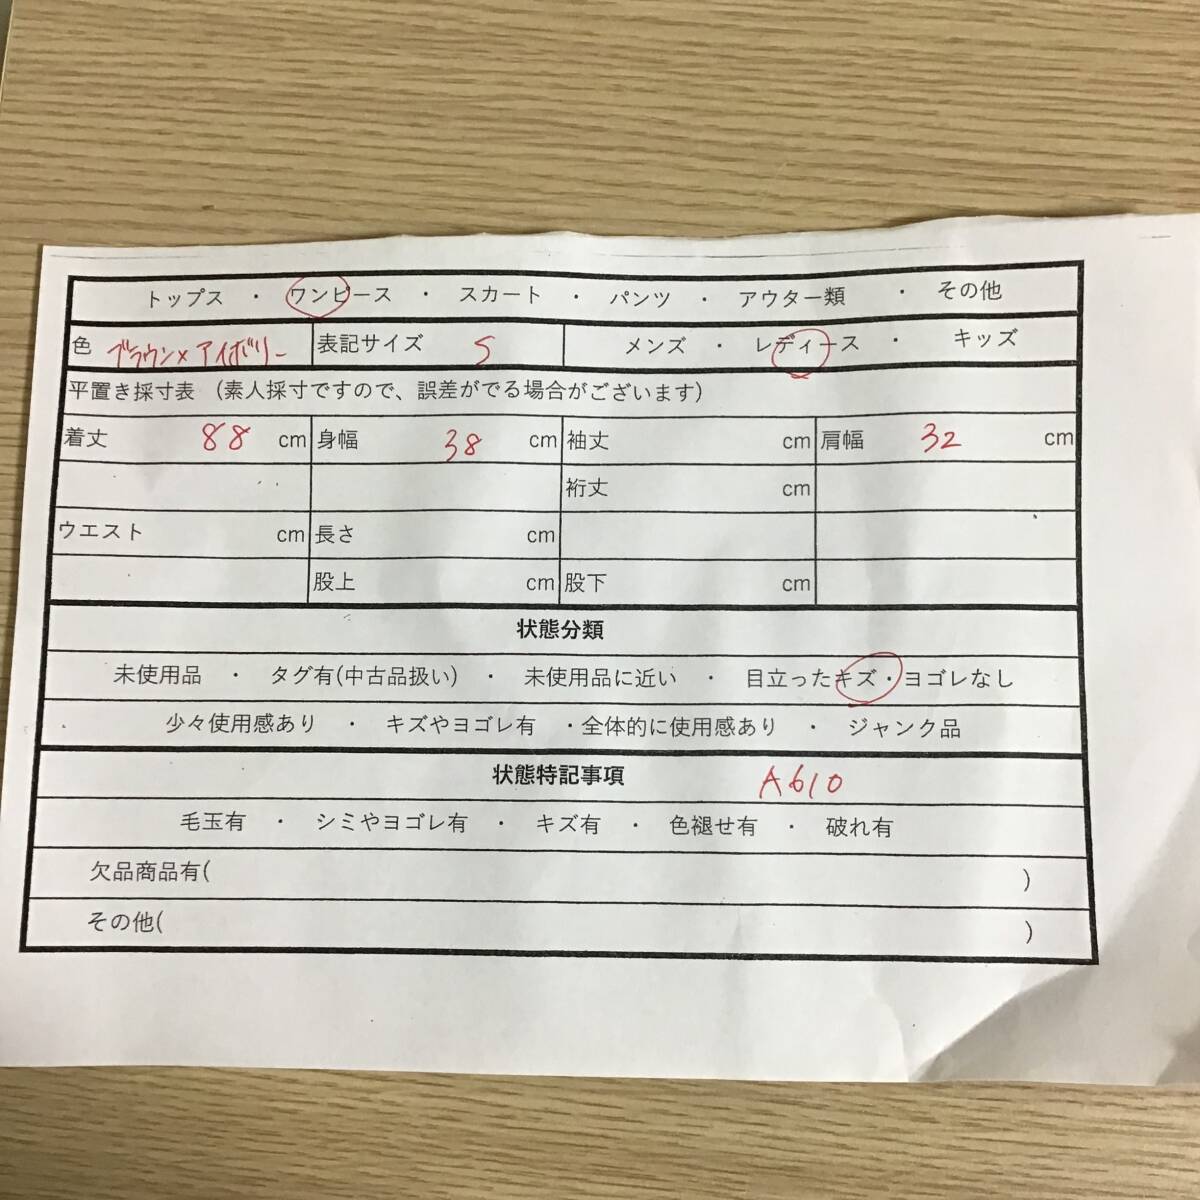 トップス ・ ワンピース ・ スカート ・ パンツ ・ アウター類 ・ その他
色 ブラウン×アイボリー 表記サイズ S メンズ ・ レディース ・ キッズ
平置き採寸表 (素人採寸ですので、誤差がでる場合がございます)
着丈 88 cm 身幅 38 cm 袖丈 cm 肩幅 32 cm
裄丈 cm
ウエスト cm 長さ cm
股上 cm 股下 cm
状態分類
未使用品 ・ タグ有(中古品扱い) ・ 未使用品に近い ・ 目立ったキズ・ヨゴレなし
少々使用感あり ・ キズやヨゴレ有 ・全体的に使用感あり ・ ジャンク品
状態特記事項 A610
毛玉有 ・ シミやヨゴレ有 ・ キズ有 ・ 色褪せ有 ・ 破れ有
欠品商品有( )
その他( )